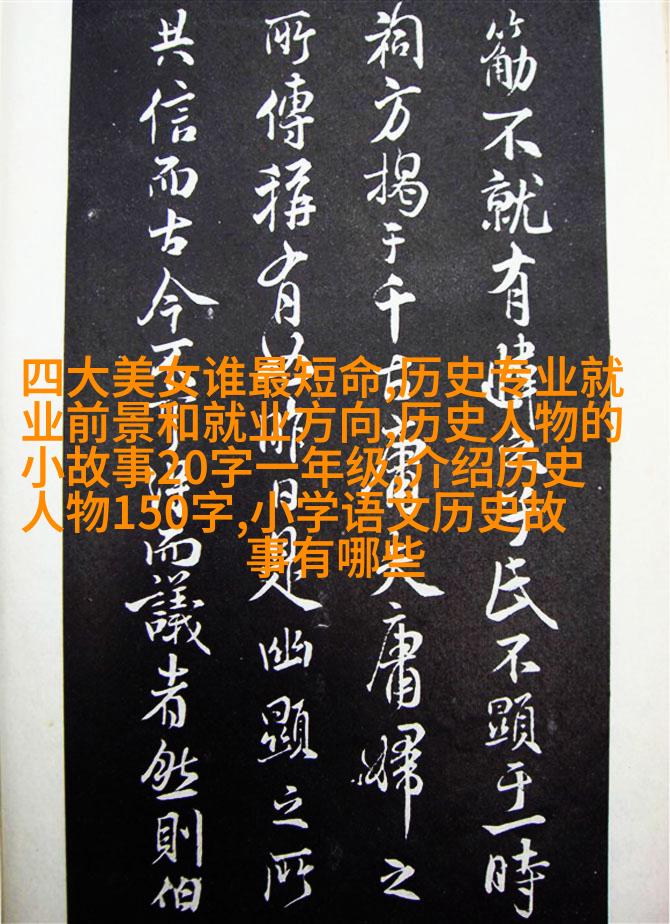 不就有氏不顯于一時
祠方揭于千古庸夫庸婦之
所傳稱有昨日是幽顯之所
共信而古今而議者然則伯
四大美女谁最短命,历史专业就
业前景和就业方向,历史人物的
小故事20字一年级,介绍历史
人物150字,小学语文历史故
事有哪些